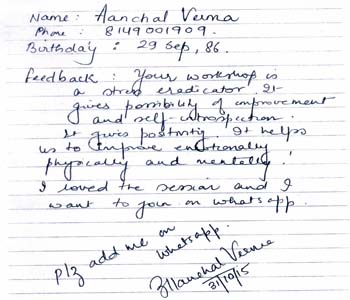 Name : Aanchal Verma
Phone : 8149001909.
Birthday : 29 Sep, 86.
Feedback : Your workshop is
a stress eradicator. It
gives possibility of improvement
and self-introspection.
It gives positivity. It helps
us to improve emotionally
physically and mentally.
I loved the session and I
want to join on whatsapp.
plz add me on
whatsapp.
Aanchal Verma
31/10/15